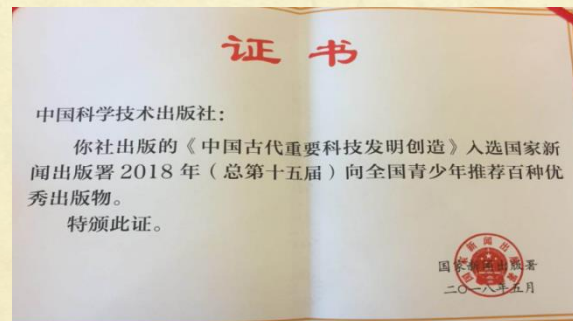 证书
中国科学技术出版社：
你社出版的《中国古代重要科技发明创造》入选国家新
闻出版署 2018 年（总第十五届）向全国青少年推荐百种优
秀出版物。
特颁此证。
国家新闻出版署
二〇一八年五月